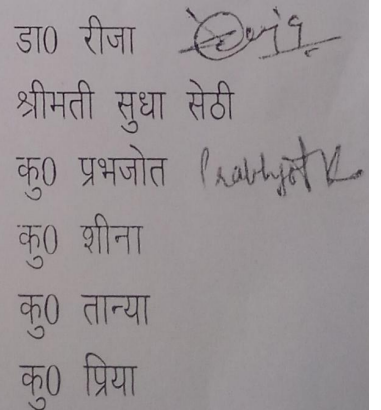 डा0 रीजा
श्रीमती सुधा सेठी
कु0 प्रभजोत Prabhjot K
कु0 शीना
कु0 तान्या
कु0 प्रिया